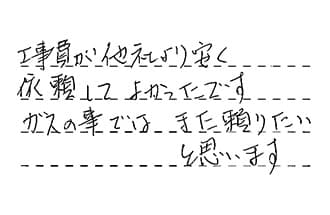 工事員が他社より安く
依頼してよかったです
ガスの事では また頼りたい
と思います